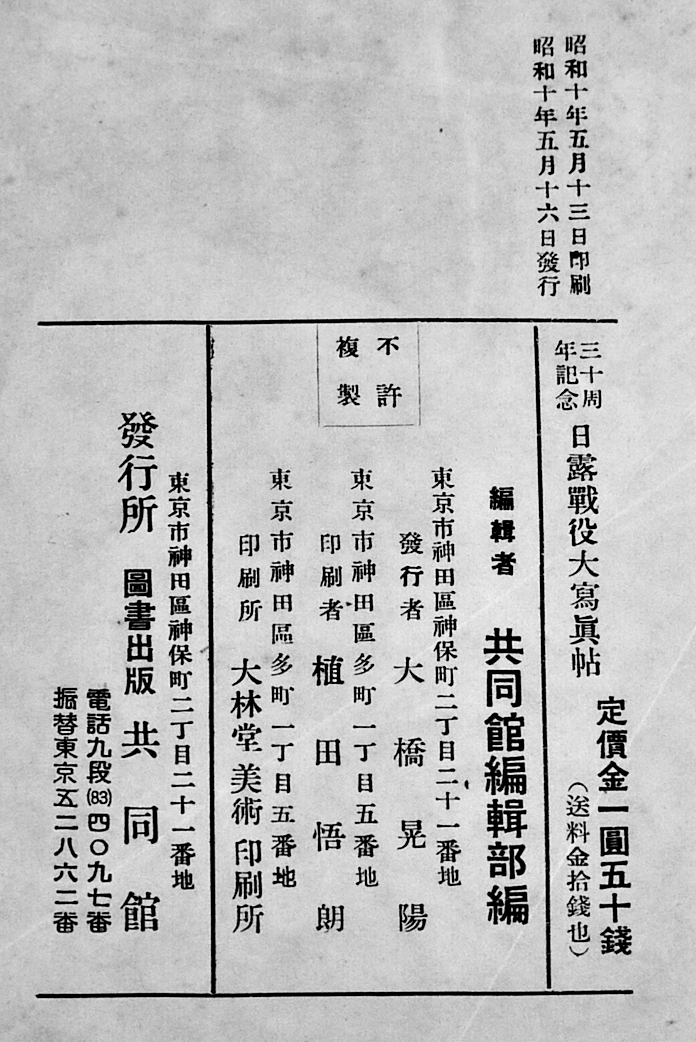 昭和十年五月十三日印刷
昭和十年五月十六日發行
三十周
年記念
日露戰役大寫眞帖
定價金一圓五十錢
(送料金拾錢也)
編輯者 共同館編輯部編
東京市神田區神保町二丁目二十一番地
發行者 大橋晃陽
不許
複製
東京市神田區多町一丁目五番地
印刷者 植田悟朗
東京市神田區多町一丁目五番地
印刷所 大林堂美術印刷所
東京市神田區神保町二丁目二十一番地
發行所 圖書出版 共同館
電話九段(83)四〇九七番
振替東京五二八六二番